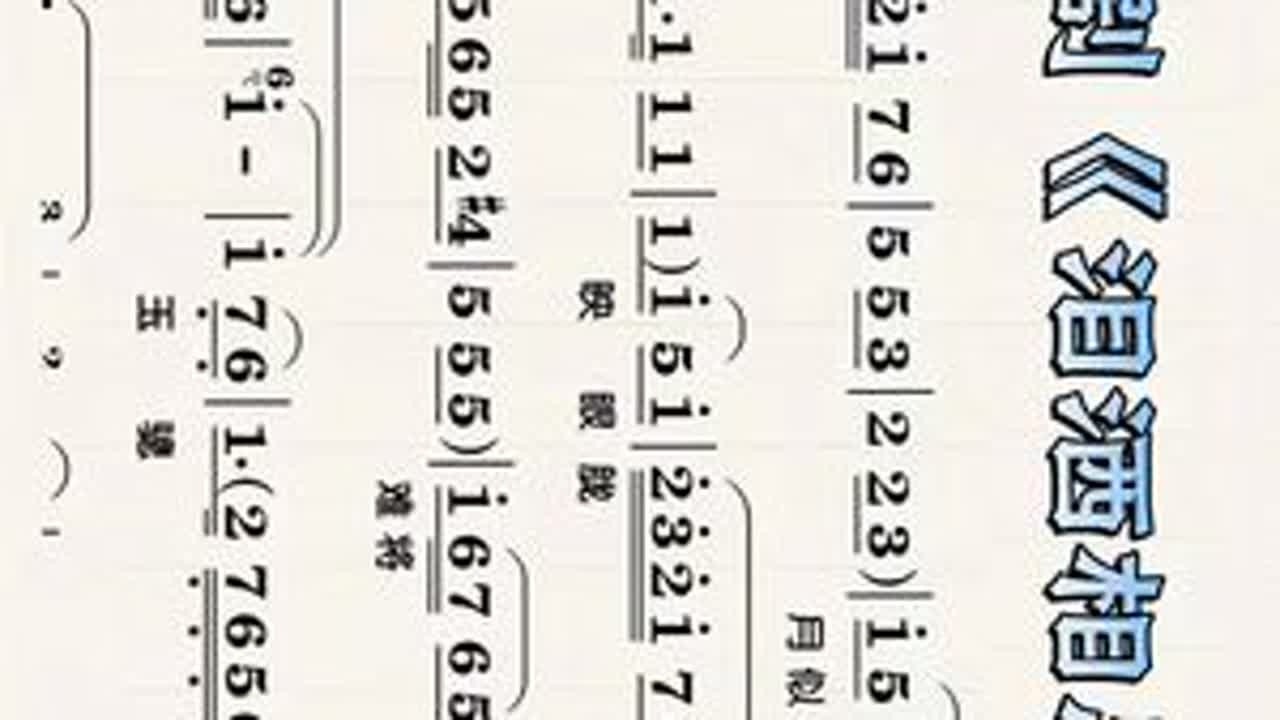 剧《泪洒相
2̇ i̇ 7 6 | 5 5 3 | 2 2 3 ) | i̇ 5
月 似
· 1 1 1 | 1 ) i̇ 5 i̇ | 2̇ 3̇ 2̇ i̇ 7
映 眼
5 6 5 2 #4 | 5 5 5 ) | i̇ 6 7 6 5
难 将
6 | 6 i̇ - | i̇ 7̣ 6̣ | 1· ( 2 7̣ 6̣ 5̣
玉